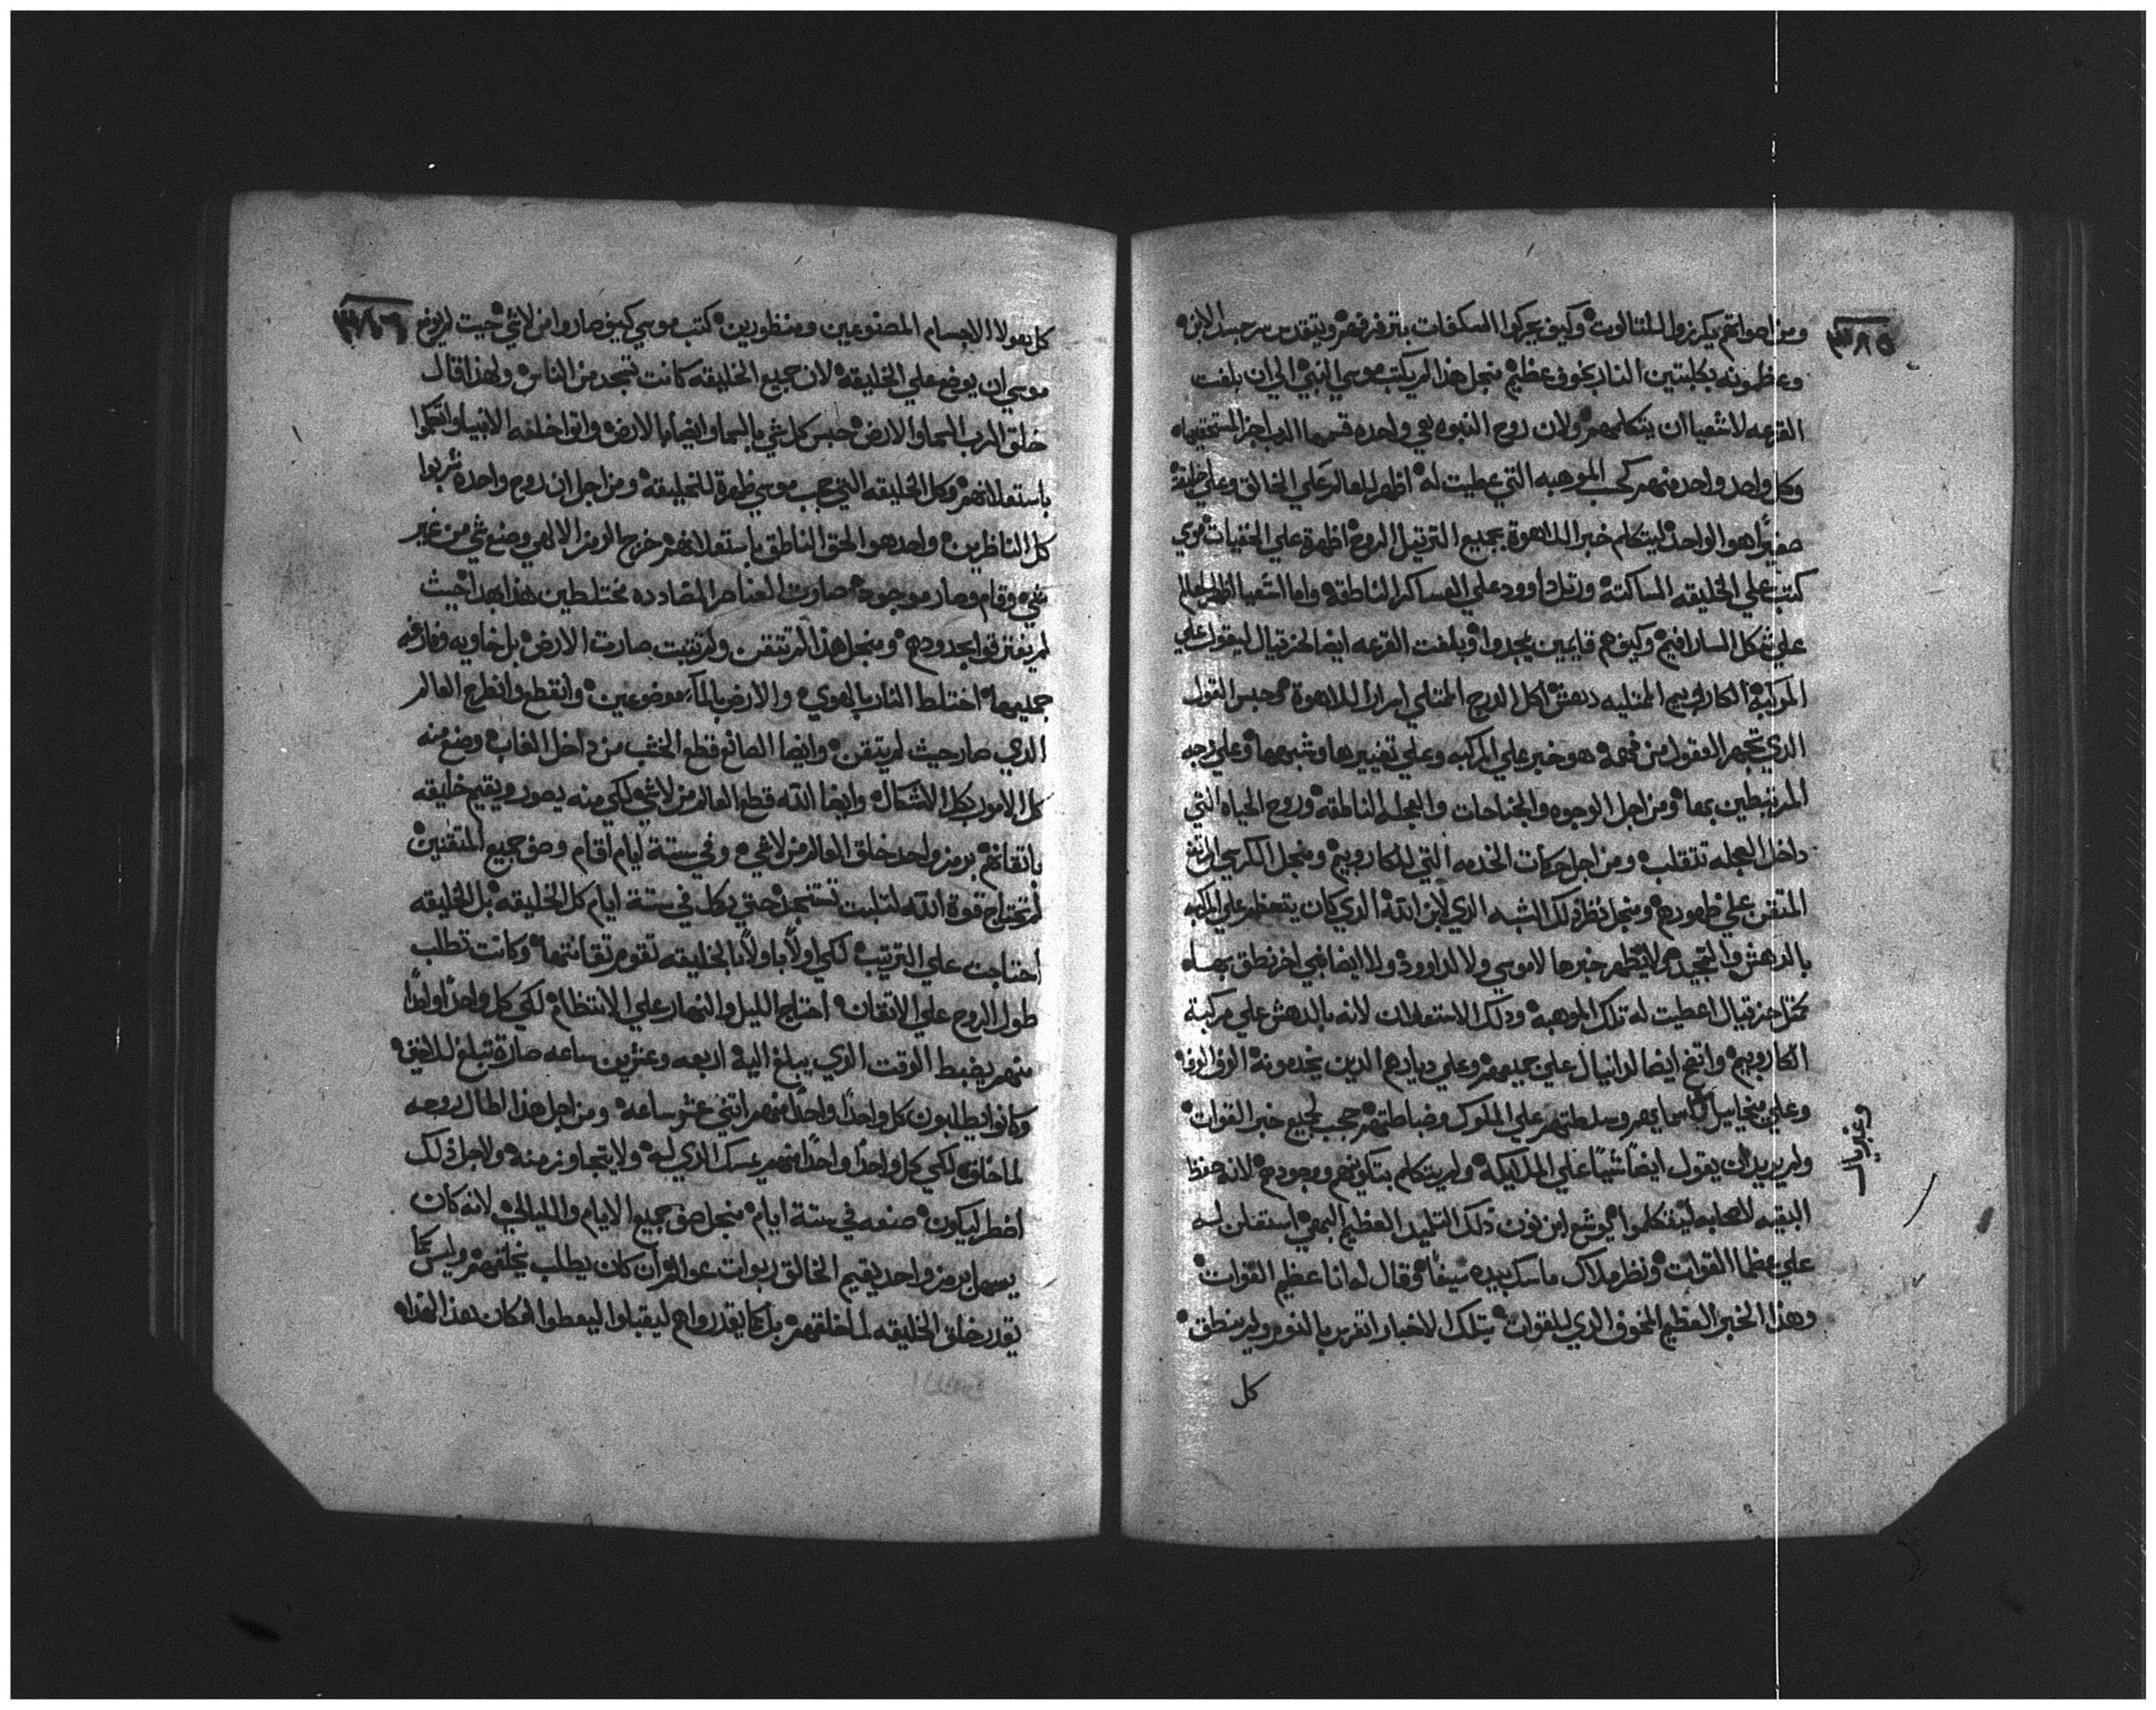 ٣٨٥
ومن اصواتهم يكرزوا الملتالوت وكيف يحركوا السكفات بترفرفهم ويتقدس سر جسد الابن
وعظمونه بكلبتين النار بخوف عظيم منجل هذا لم يكتب موسي النبي الي ان بلغت
القرعه لاشعيا ان يتكلمهم ولان روح النبوه هي واحده قسمها الرب اجزا لمستحقيها
وكل واحد واحد منهم كحسب الموهبه التي عطيت له اظهر للعالم علي الخالق وعلي خلقة
صغيرا هو الواحد ليتكلم خبر اللاهوة بجميع الترتيل الروح اظهرة علي الخفيات موسي
كتب علي الخليقه الساكتة ورتل داوود علي العساكر الناطقة واما اشعيا اظهر للعالم
علي شكل السارافيم وكيف هم قايمين يمجدوا وبلغت القرعه ايضا لحزقيال ليقول علي
المركبة الكاروبيم الممتليه دهش لكل الدرج الممتلي اسرار اللاهوة وحبس القول
الذي تجهر العقول من فهمه هو خبر علي المركبه وعلي تغييرها وشبهها وعلي زجه
المرتبطين بها ومن اجل الوجوه والجناحات والعجله الناطقة وروح الحياه التي
داخل العجله تتقلب ومن اجل حركات الخدمه التي للكاروبيم ومنجل الكرسي المرتفع
المتقن علي ظهورهم ومنجل نظر ذلك الشبه الذي لابن الله الذي كان يتعظم علي المركبه
بالدهش والتمجيد هو لا يظهر خبرها لا موسي ولا لداوود ولا ايضا نبي اخر نطق بهاه
مختل حزقيال اعطيت له تلك الموهبه وذلك الاستعلان لانه بالدهش علي مركبة
الكاروبيم واتضح ايضا لدانيال علي جميعهم وعلي ديارهم الذين يخدمونة الوف الوف
وعلي ميخاييل باسمايهم وسلطتهم علي الملوك وضباطتهم حجب لجميع خبر القوات
وغبريال
ولم يريد ان يقول ايضا شيا علي الملايكة ولم يتكلم بتكونهم ووجودهم لانه حفظ
البقيه لاصحابه ليتكلموا يوشع ابن نون ذلك التلميد العظيم البهي استعلن له
علي عظما القوات ونظر ملاك ماسك بيده سيفا وقال له انا عظيم القوات
وهذا الخبر العظيم المخوف الذي للقوات بتلك الاخبار اتغرس بالنور ولم ينطق
كل
٣٨٦
كل هولا الاجسام المصنوعين ومنظورين كتب موسي كيف صاروا من لاشي حيت لم يوضع
موسي ان يوضع علي الخليقة لان جميع الخليقه كانت تتمجد من الناس ولهذا قال
خلق الرب السما والارض حبس كل شي بالسما وايضا بالارض واتوا خلفه الانبيا واتكلموا
باستعلانهم وكل الخليقه التي حجب موسي ظهرة للخليقة ومن اجل ان روح واحده شربوا
كل الناظرين واحد هو الحق الناطق باستعلانهم خرج الرمز الالهي وصنع شي من غير
شي وقام وصار موجود صاروت العناصر المضادده مختلطين هذا بهذا حيث
لم يفترقوا بحدودهم ومنجل هذا لم تتقن ولم تتبت صارت الارض بل خاويه وفارغه
جميعها اختلط النار بالهوي والارض بالمآ موضوعين وانقطع وانطرح العالم
الذي صار حيث لم يتقن وايضا الصانع قطع الخشب من داخل الغاب وصنع منه
كل الامور بكل الاشكال وايضا الله قطع العالم من لاشي لكي منه يصور ويقيم خليقه
باتقانهم برمز واحد خلق العالم من لاشي وفي ستة ايام اقام وصف جميع المتقنين
لم تحتاج قوة الله لتلبت تستنجد حتي بكل في ستة ايام كل الخليقه بل الخليقه
احتاجت علي الترتيب لكي اولا باولا الخليقه تقوم بتقانتها وكانت تطلب
طول الروح علي الاتقان احتاج الليل والنهار علي الانتظام لكي كل واحدا واحدا
منهم يضبط الوقت الذي يبلغ اليه اربعه وعشرين ساعه صارة تبلغ للافق
وكانوا يطلبون كل واحدا واحدا منهم اتني عشر ساعه ومن اجل هذا اطال روحه
لما خلق لكي كل واحدا واحدا منهم يمسك الذي له ولا يتجاوز منه ولاجل ذلك
اضطر ليكون صنعه في ستة ايام منجل صف جميع الايام والليالي لانه كان
يسهل برمز واحد يقيم الخالق ربوات عوالم ان كان يطلب يخلقهم وليس كما
يقدر خلق الخليقه لما خلقهم بل كما يقدر واهم ليقبلوا ليعطوا لمكان هذا لهذا